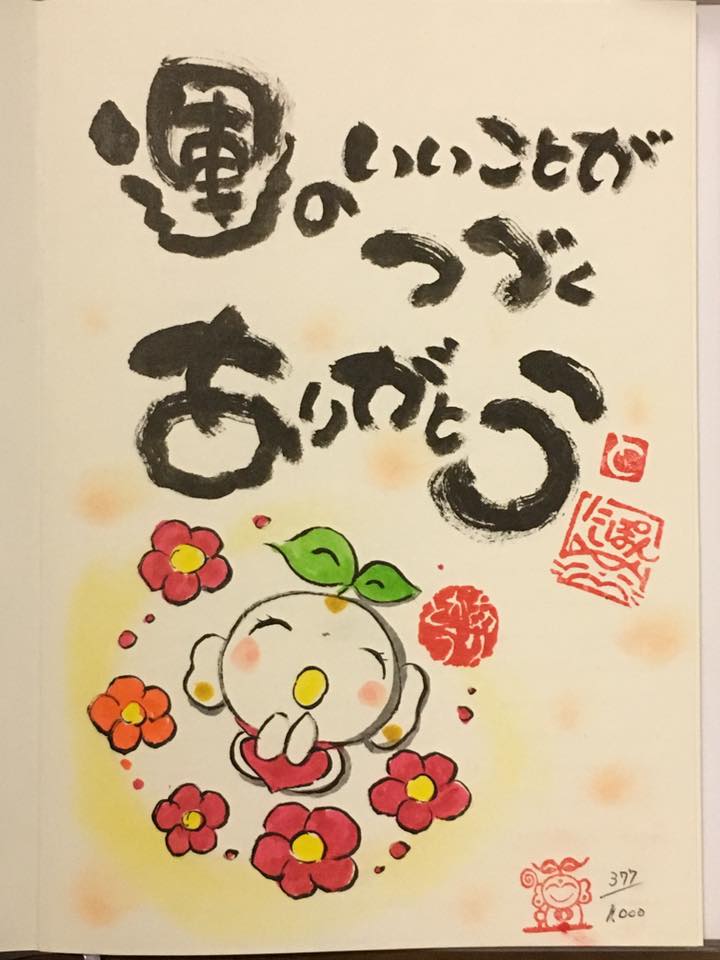 運のいいことが
つづく
ありがとう
にっぽん
377
1000